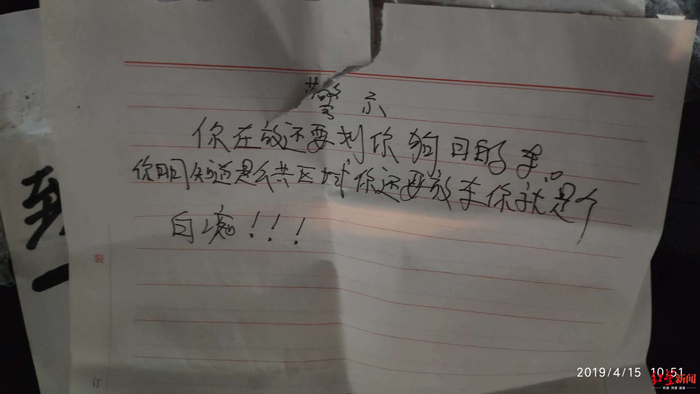 警示
你在放还要划你狗日的车。
你明知道是公共区域你还要放车你就是个
白痴!!!
装
订
2019/4/15 10:51
红星新闻